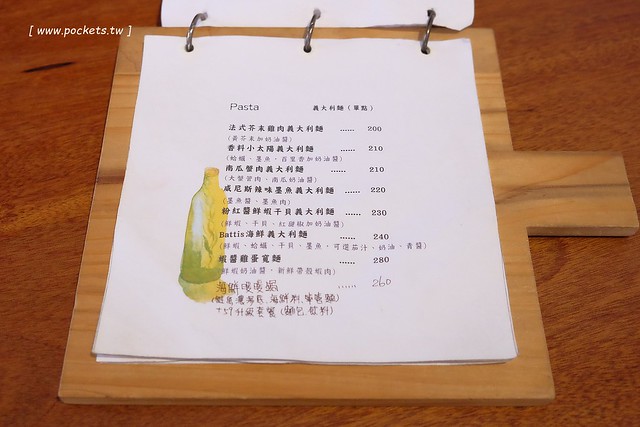 [ www.pockets.tw ]
Pasta 義大利麵（單點）
法式芥末雞肉義大利麵 ...... 200
(黃芥末加奶油醬)
香料小太陽義大利麵 ...... 210
(蛤蠣、墨魚、百里香加奶油醬)
南瓜蟹肉義大利麵 ...... 210
(大蟹管肉、南瓜奶油醬)
威尼斯辣味墨魚義大利麵 ...... 220
(墨魚醬、墨魚肉)
粉紅醬鮮蝦干貝義大利麵 ...... 230
(鮮蝦、干貝、紅甜椒加奶油醬)
Battis海鮮義大利麵 ...... 240
(鮮蝦、蛤蠣、干貝、墨魚，可選茄汁、奶油、青醬)
蝦醬雞蛋寬麵 ...... 280
(鮮蝦奶油醬、新鮮帶殼蝦肉)
海鮮暖暖鍋 ...... 260
+59升級套餐 (麵包,飲料)